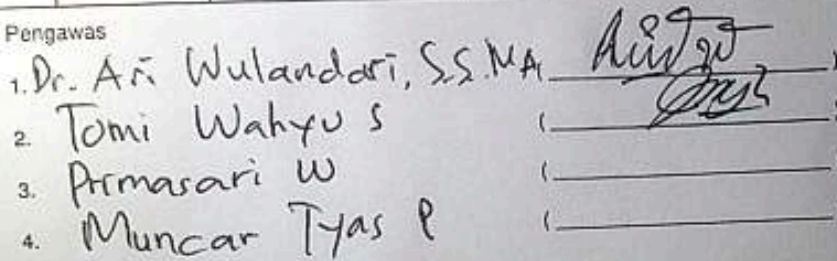 Pengawas
1. Dr. Ari Wulandari, S.S. MA (
2. Tomi Wahyu S (
3. Primasari W (
4. Muncar Tyas P (